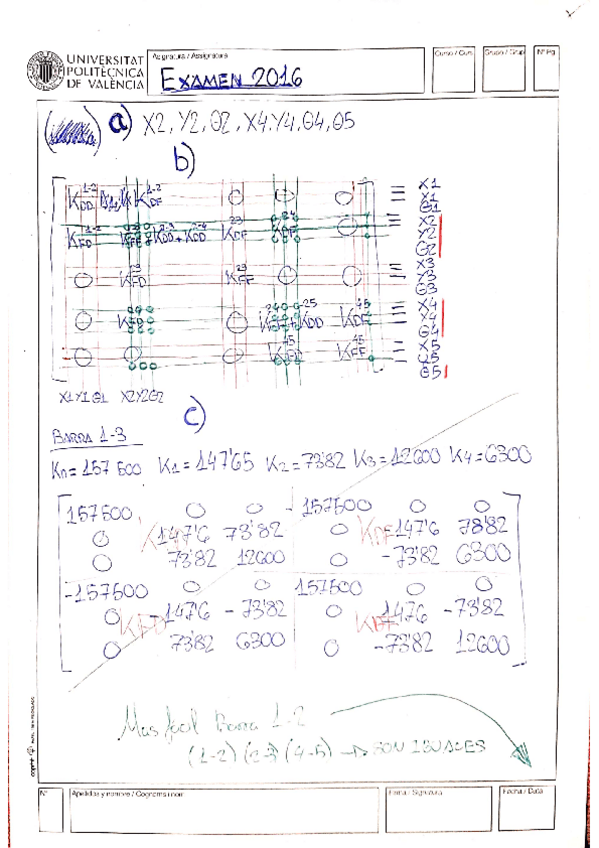 UNIVERSITAT
POLITÈCNICA
DE VALÈNCIA
Asignatura / Assignatura
EXAMEN 2016
Curso / Curs
Grupo / Grup
Nº Pg
a) X2, Y2, θ2, X4, Y4, θ4, θ5
b)
K_DD^1-2 K_DF^1-2 0 0 0 = X1
Y1
θ1
K_FD^1-2 K_FF + K_DD^2-3 + K_DD^2-4 K_DF^23 K_DF^24 0 = X2
Y2
θ2
0 K_FD^23 K_FF^23 0 0 = X3
Y3
θ3
0 K_FD^24 0 K_FF^24 + K_DD^45 K_DF^45 = X4
Y4
θ4
0 0 0 K_FD^45 K_FF^45 = X5
Y5
θ5
X1 Y1 θ1 X2 Y2 θ2
c)
BARRA 1-3
K0 = 157 500 K1 = 147'65 K2 = 73'82 K3 = 12600 K4 = 6300
157500 0 0 -157500 0 0
0 147'6 73'82 0 -147'6 73'82
0 73'82 12600 0 -73'82 6300
-157500 0 0 157500 0 0
0 -147'6 -73'82 0 147'6 -73'82
0 73'82 6300 0 -73'82 12600
KDF
KFD
KFF
Mas facil Barra 1-2
(1-2) (2-3) (4-5) → SON IGUALES
Nº
Apellidos y nombre / Cognoms i nom
Firma / Signatura
Fecha / Data